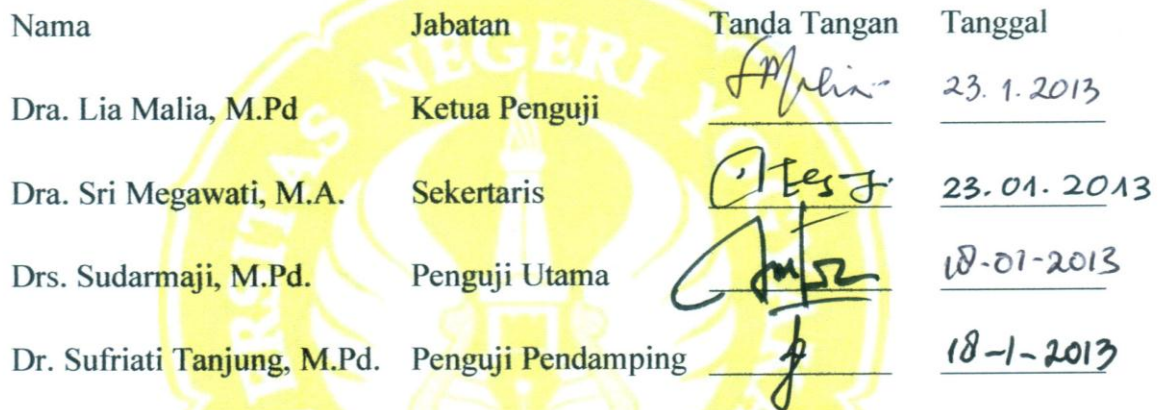 Nama Jabatan Tanda Tangan Tanggal
Dra. Lia Malia, M.Pd Ketua Penguji 23.1.2013
Dra. Sri Megawati, M.A. Sekertaris 23.01.2013
Drs. Sudarmaji, M.Pd. Penguji Utama 18-01-2013
Dr. Sufriati Tanjung, M.Pd. Penguji Pendamping 18-1-2013
NEGERI